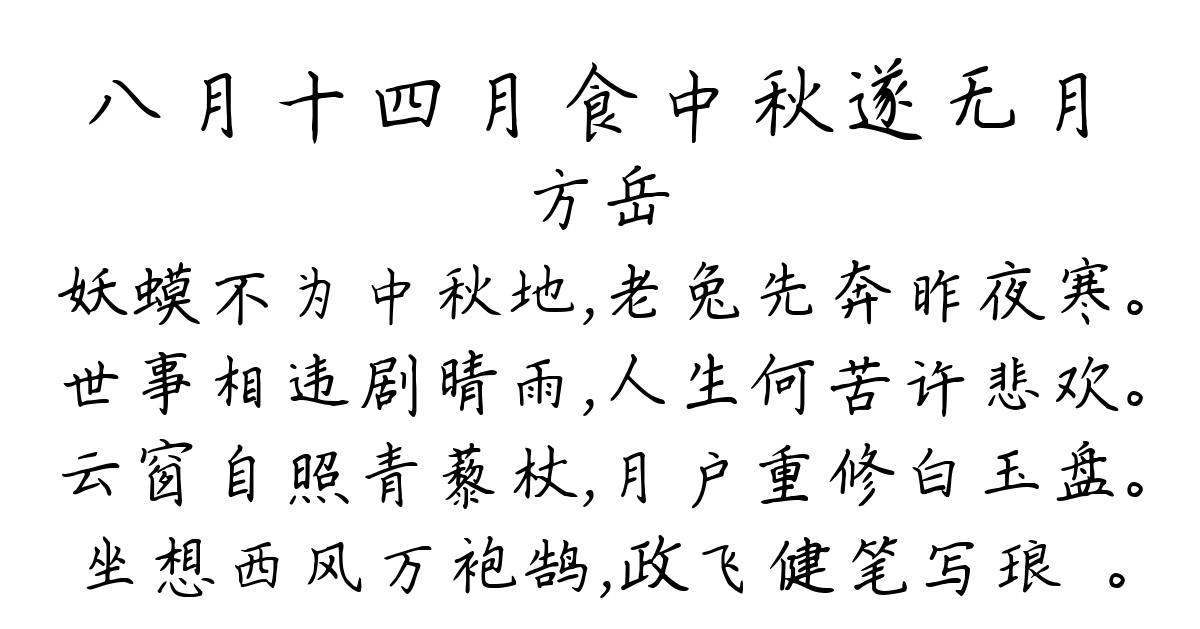 八月十四月食中秋遂无月
方岳
妖蟆不为中秋地,老兔先奔昨夜寒。
世事相违剧晴雨,人生何苦许悲欢。
云窗自照青藜杖,月户重修白玉盘。
坐想西风万袍鹄,政飞健笔写琅 。